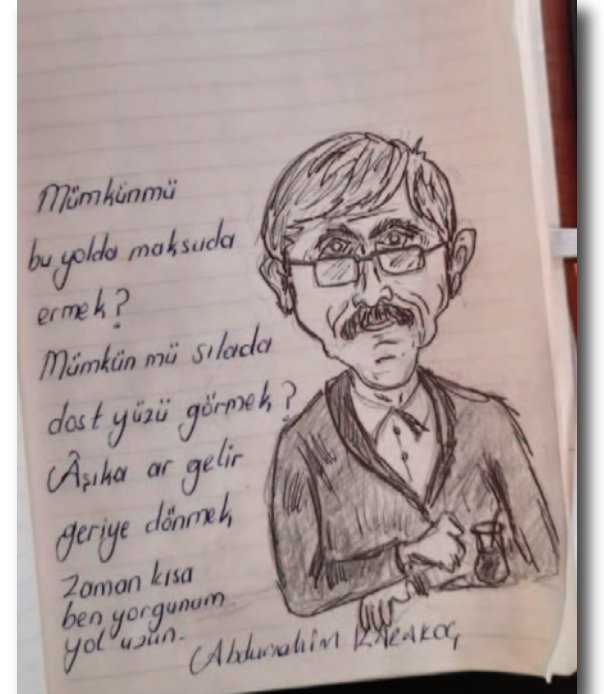 Mümkünmü
bu yolda maksuda
ermek?
Mümkün mü sılada
dost yüzü görmek?
Âşıka ar gelir
geriye dönmek
Zaman kısa
ben yorgunum
yol uzun.
Abdurrahim KARAKOÇ